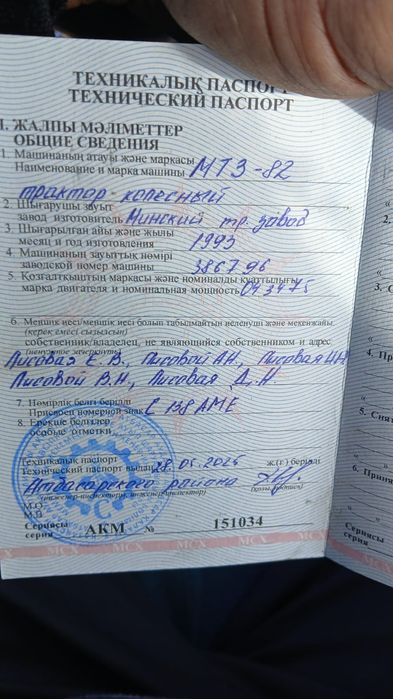 ТЕХНИКАЛЫҚ ПАСПОРТ
ТЕХНИЧЕСКИЙ ПАСПОРТ
I. ЖАЛПЫ МӘЛІМЕТТЕР
ОБЩИЕ СВЕДЕНИЯ
1. Машинаның атауы және маркасы
Наименование и марка машины МТЗ-82
трактор колесный
2. Шығарушы зауыт
завод изготовитель Минский тр. завод
3. Шығарылған айы және жылы
месяц и год изготовления 1993
4. Машинаның зауыттық нөмірі
заводской номер машины 386796
5. Қозғалтқыштың маркасы және номиналды қуаттылығы
марка двигателя и номинальная мощность 043475
6. Меншік иесі/меншік иесі болып табылмайтын иеленуші және мекенжайы
(керек емесі сызылсын)
собственник/владелец, не являющийся собственником и адрес
(ненужное зачеркнуть)
Лисовая Е. В., Лисовой А.Н., Лисовая
Лисовой В.Н., Лисовая Д.Н.
7. Нөмірлік белгі берілді
Присвоен номерной знак С 138 АМЕ
8. Ерекше белгілер
особые отметки
Техникалық паспорт
Технический паспорт выдан 28.05.2025 ж.(г.) берілді
Атбасарского района
(инженер-инспектор)
(қолы, подпись)
М.О.
М.П.
Сериясы
серия АКМ № 151034
МСХ МСХ МСХ
2.
3. С
4. Пр
5. Снят
6. Приня
Сериясы
серия